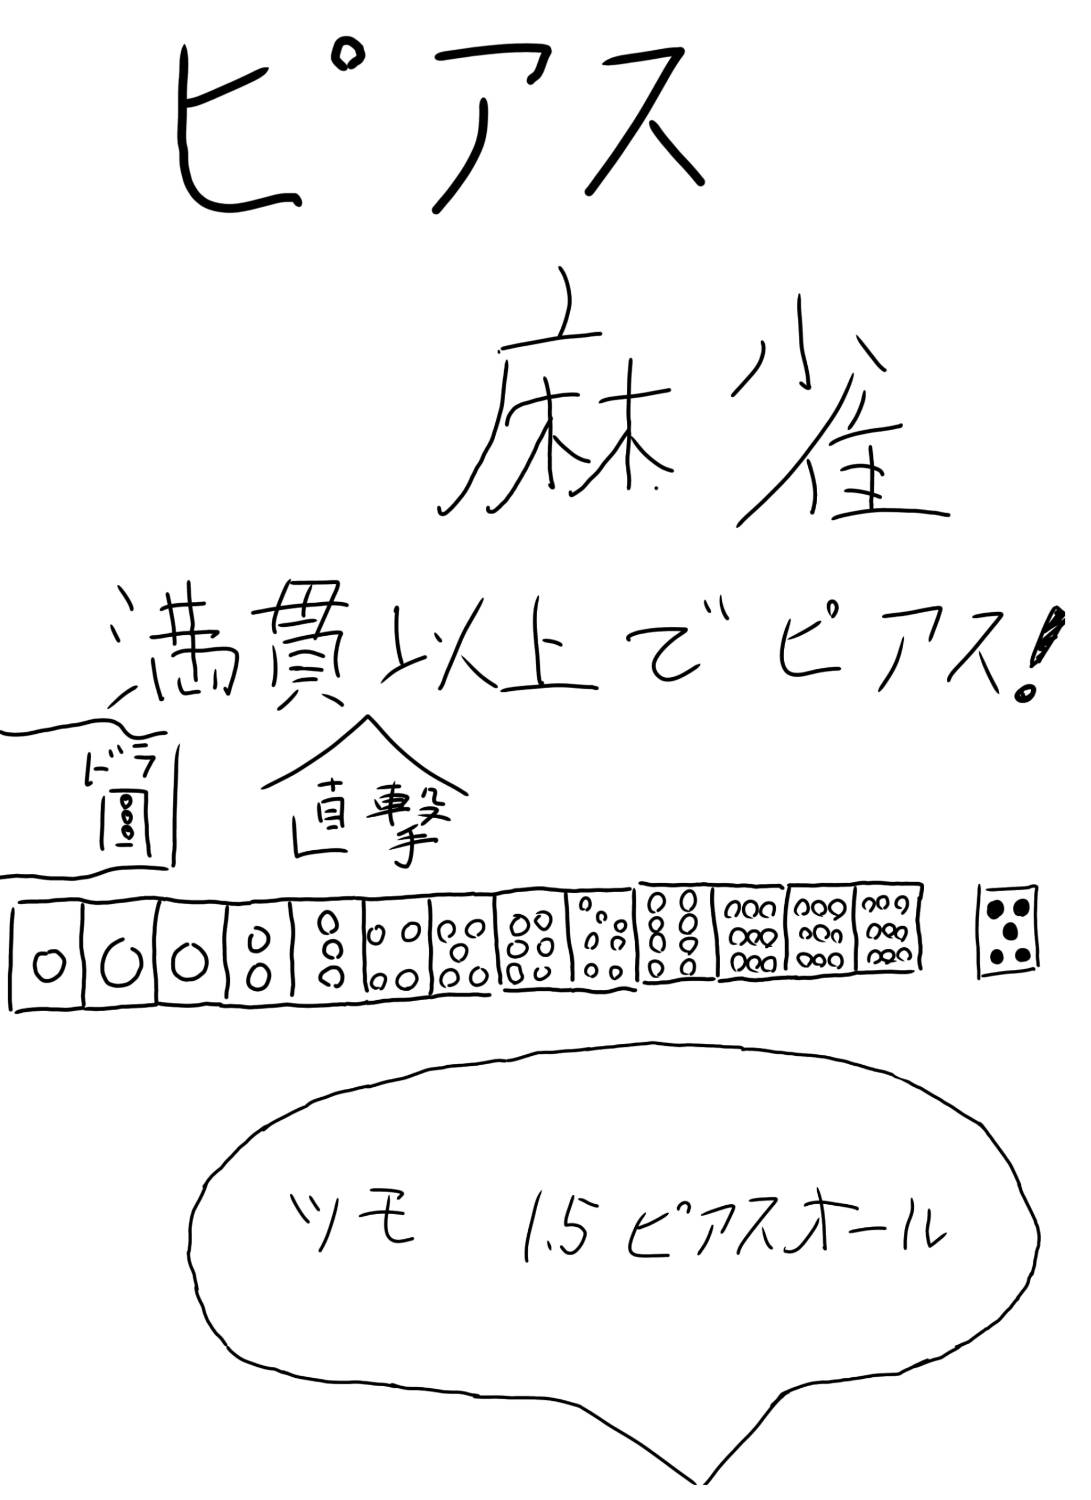 ピアス
麻雀
満貫以上でピアス!
ドラ
直撃
ツモ 1.5ピアスオール